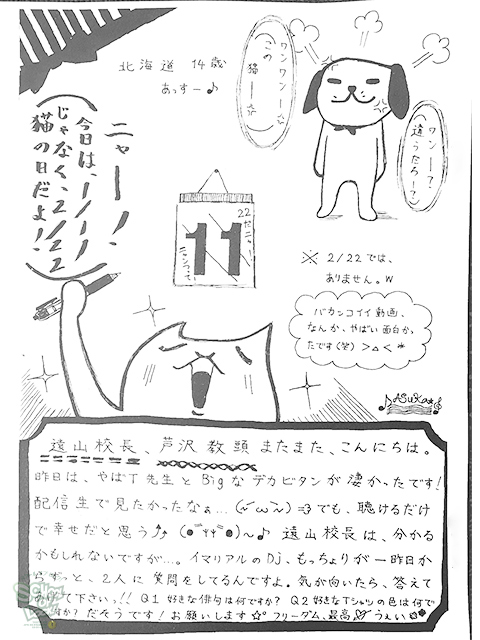 北海道 14歳
あっすー♪
ワンワンー
(この猫ーな)
ワンー?
(違うだろー?)
ニャー!
(今日は、1/11
じゃなく、2/22
猫の日だよ!)
22だニャ!
11
ニャンつって
※ 2/22では、
ありません。w
バカンコイイ動画、
なんか、やばい面白かっ
たです(笑)>△<*
ASUKA
遠山校長、芦沢教頭またまた、こんにちは。
昨日は、やばT先生とBigなデカビタンが凄かったです!
配信生で見たかったなぁ…(~´ω`~)=3 でも、聴けるだけ
で幸せだと思う♪ 遠山校長は、分かる
かもしれないですが…。イマリアルのDJ、もっちょりが一昨日か
らずっと、2人に質問をしてるんですよ。気が向いたら、答えて
あげて下さい。!! Q1 好きな俳句は何ですか? Q2 好きなTシャツの色は何で
すか? だそうです!お願いします☆ フリーダム、最高 うぇい